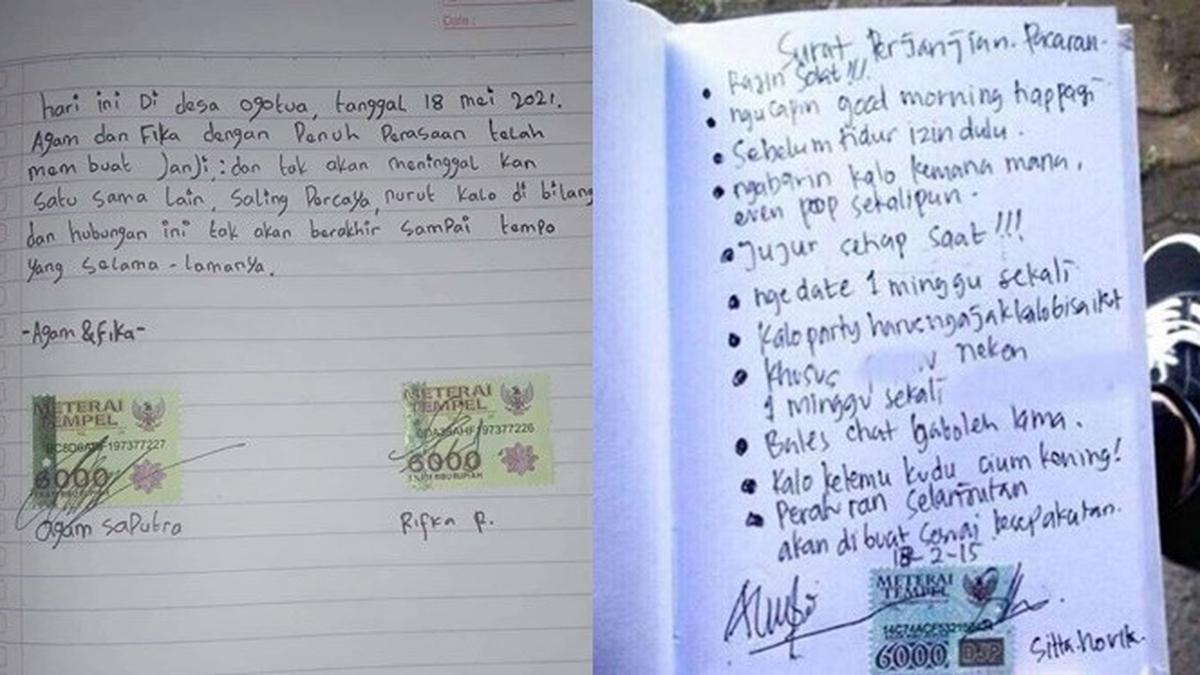 Date :
hari ini Di desa ogotua, tanggal 18 mei 2021.
Agam dan Fika dengan Penuh Perasaan telah
mem buat JanJi,:dan tak akan meninggal kan
Satu sama Lain, Saling Percaya, nurut kalo di bilang
dan hubungan ini tak akan berakhir SamPai tempo
Yang Selama-lamanya.
-Agam & Fika-
METERAI
TEMPEL
197377227
6000
ENAM RIBU RUPIAH
Agam SaPutra
METERAI
TEMPEL
197377226
6000
ENAM RIBU RUPIAH
Rifka R.
Surat Perjanjian. Pacaran.
• Rajin Solat!!!
• ngucapin good morning happagi
• Sebelum tidur izin dulu.
• ngabarin kalo kemana mana,
even poop sekalipun.
• Jujur setiap saat!!!
• nge date 1 minggu sekali
• Kalo party harus ngajak kalo bisa ikut
• Khusus neken
1 minggu sekali
• Bales chat gaboleh lama.
• Kalo ketemu kudu cium kening!
• Peraturan Selanjutan
akan dibuat Sesuai kesepakatan.
18-2-15
METERAI
TEMPEL
6000 DJP
Sitta.Novik.